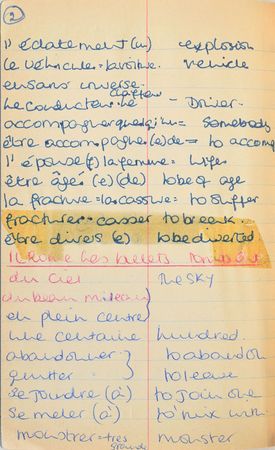 2
l'éclatement (m) explosion
le véhicule = la voiture. vehicle
en sens inverse
le conducteur - Driver
accompagner quelqu'un = Somebody
être accompagné (e) de = to accomp
l'épouse (f) la femme = Wife
être âgé (e) (de) to be of age
la fracture = la cassure = to suffer
fracturer = casser to break
être divers (e) to be diverted
du ciel The SKY
du beau milieu
en plein centre
une centaine hundred
abandonner to abandon
quitter to leave
se joindre (à) to join one
se meler (à) to mix with
monstrer = très monster
grande